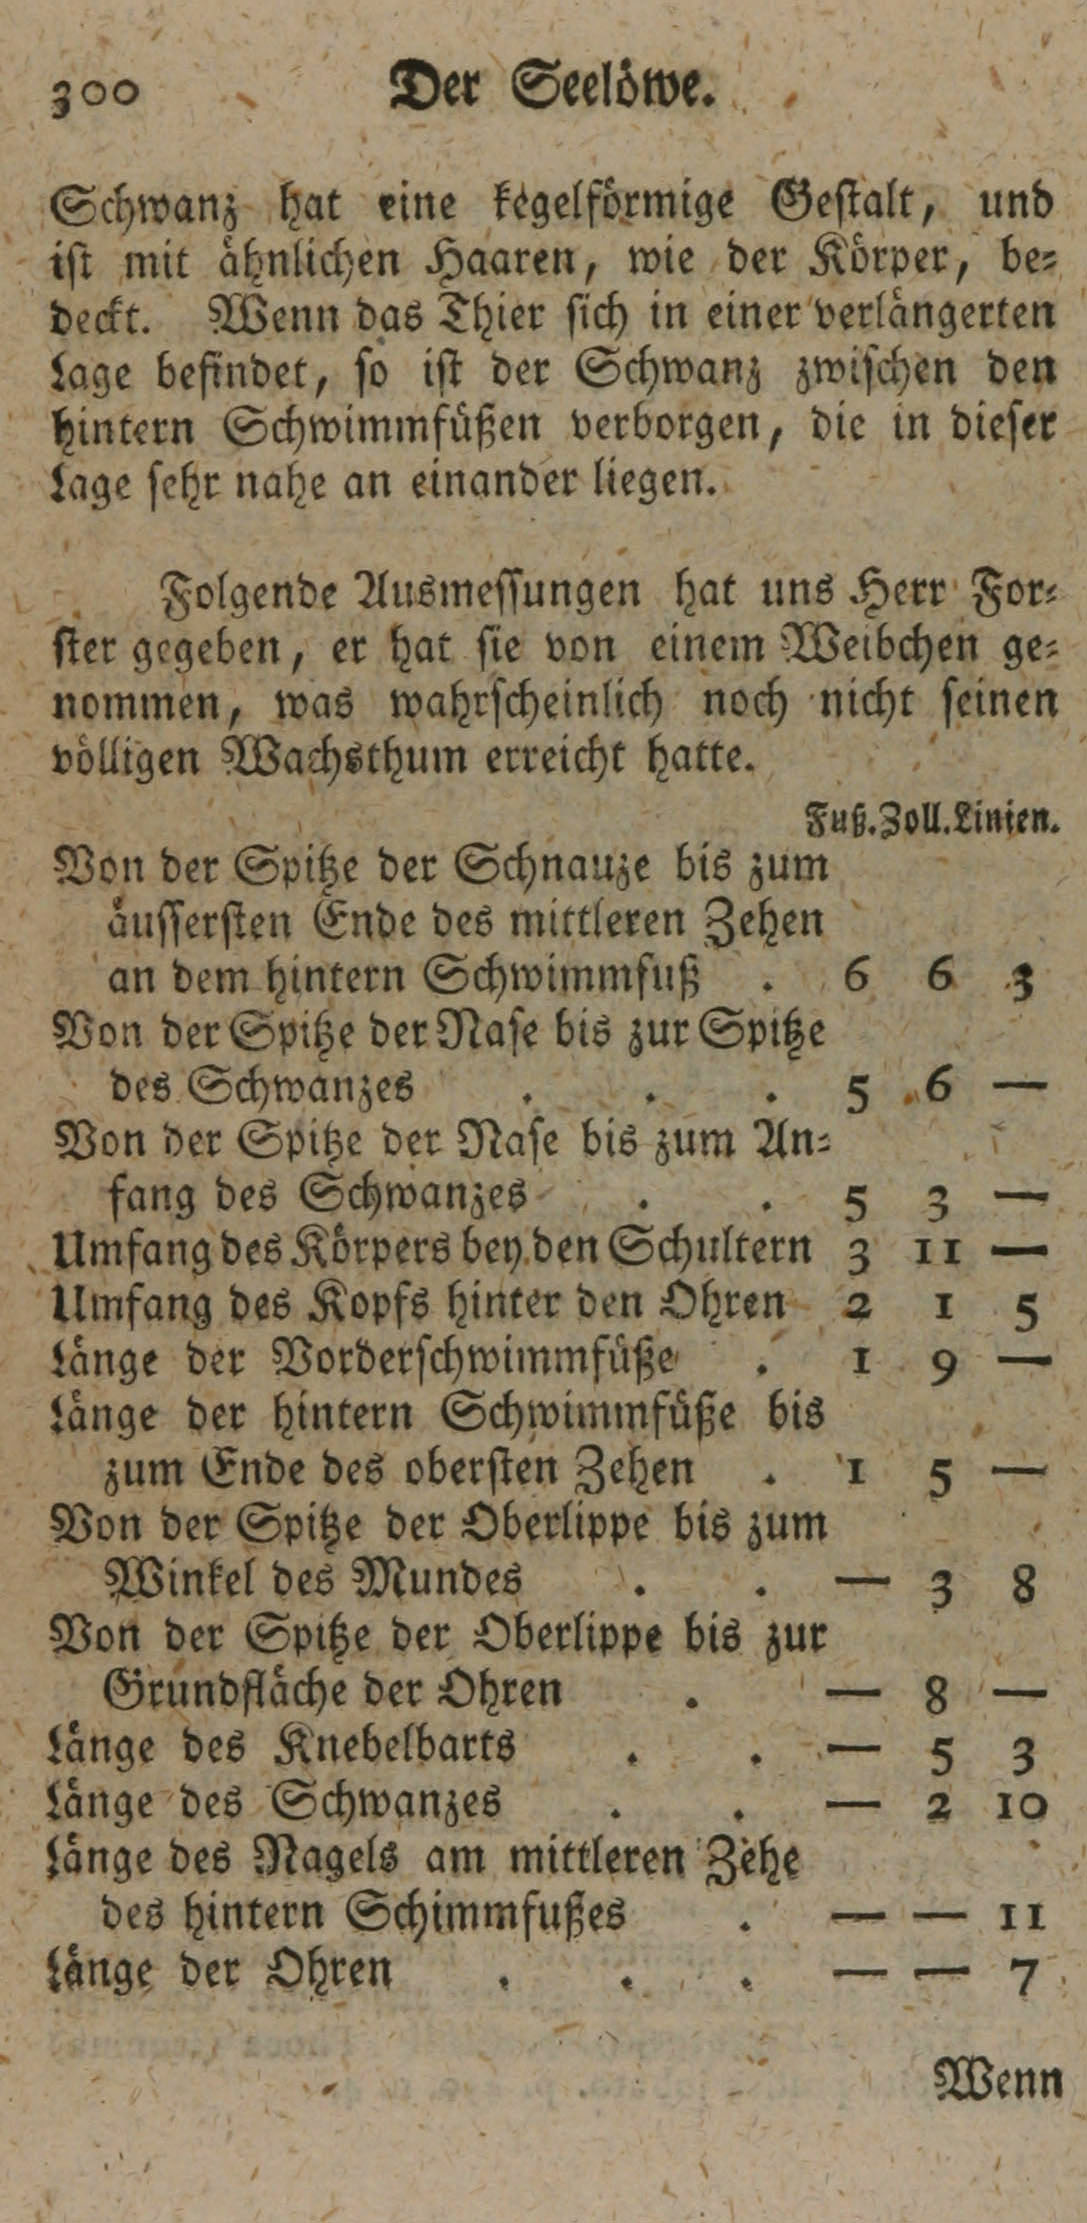 300 Der Seelöwe.
Schwanz hat eine kegelförmige Gestalt, und
ist mit ähnlichen Haaren, wie der Körper, be⸗
deckt. Wenn das Thier sich in einer verlängerten
Lage befindet, so ist der Schwanz zwischen den
hintern Schwimmfüßen verborgen, die in dieser
Lage sehr nahe an einander liegen.
Folgende Ausmessungen hat uns Herr For⸗
ster gegeben, er hat sie von einem Weibchen ge⸗
nommen, was wahrscheinlich noch nicht seinen
völligen Wachsthum erreicht hatte.
Fuß. Zoll. Linien.
Von der Spitze der Schnauze bis zum
äussersten Ende des mittleren Zehen
an dem hintern Schwimmfuß . 6 6 3
Von der Spitze der Nase bis zur Spitze
des Schwanzes . . . 5 6 —
Von der Spitze der Nase bis zum An⸗
fang des Schwanzes . . 5 3 —
Umfang des Körpers bey den Schultern 3 11 —
Umfang des Kopfs hinter den Ohren 2 1 5
Länge der Vorderschwimmfüße . 1 9 —
Länge der hintern Schwimmfüße bis
zum Ende des obersten Zehen . 1 5 —
Von der Spitze der Oberlippe bis zum
Winkel des Mundes . . — 3 8
Von der Spitze der Oberlippe bis zur
Grundfläche der Ohren . — 8 —
Länge des Knebelbarts . . — 5 3
Länge des Schwanzes . . — 2 10
Länge des Nagels am mittleren Zehe
des hintern Schimmfußes . — — 11
Länge der Ohren . . . — — 7
Wenn